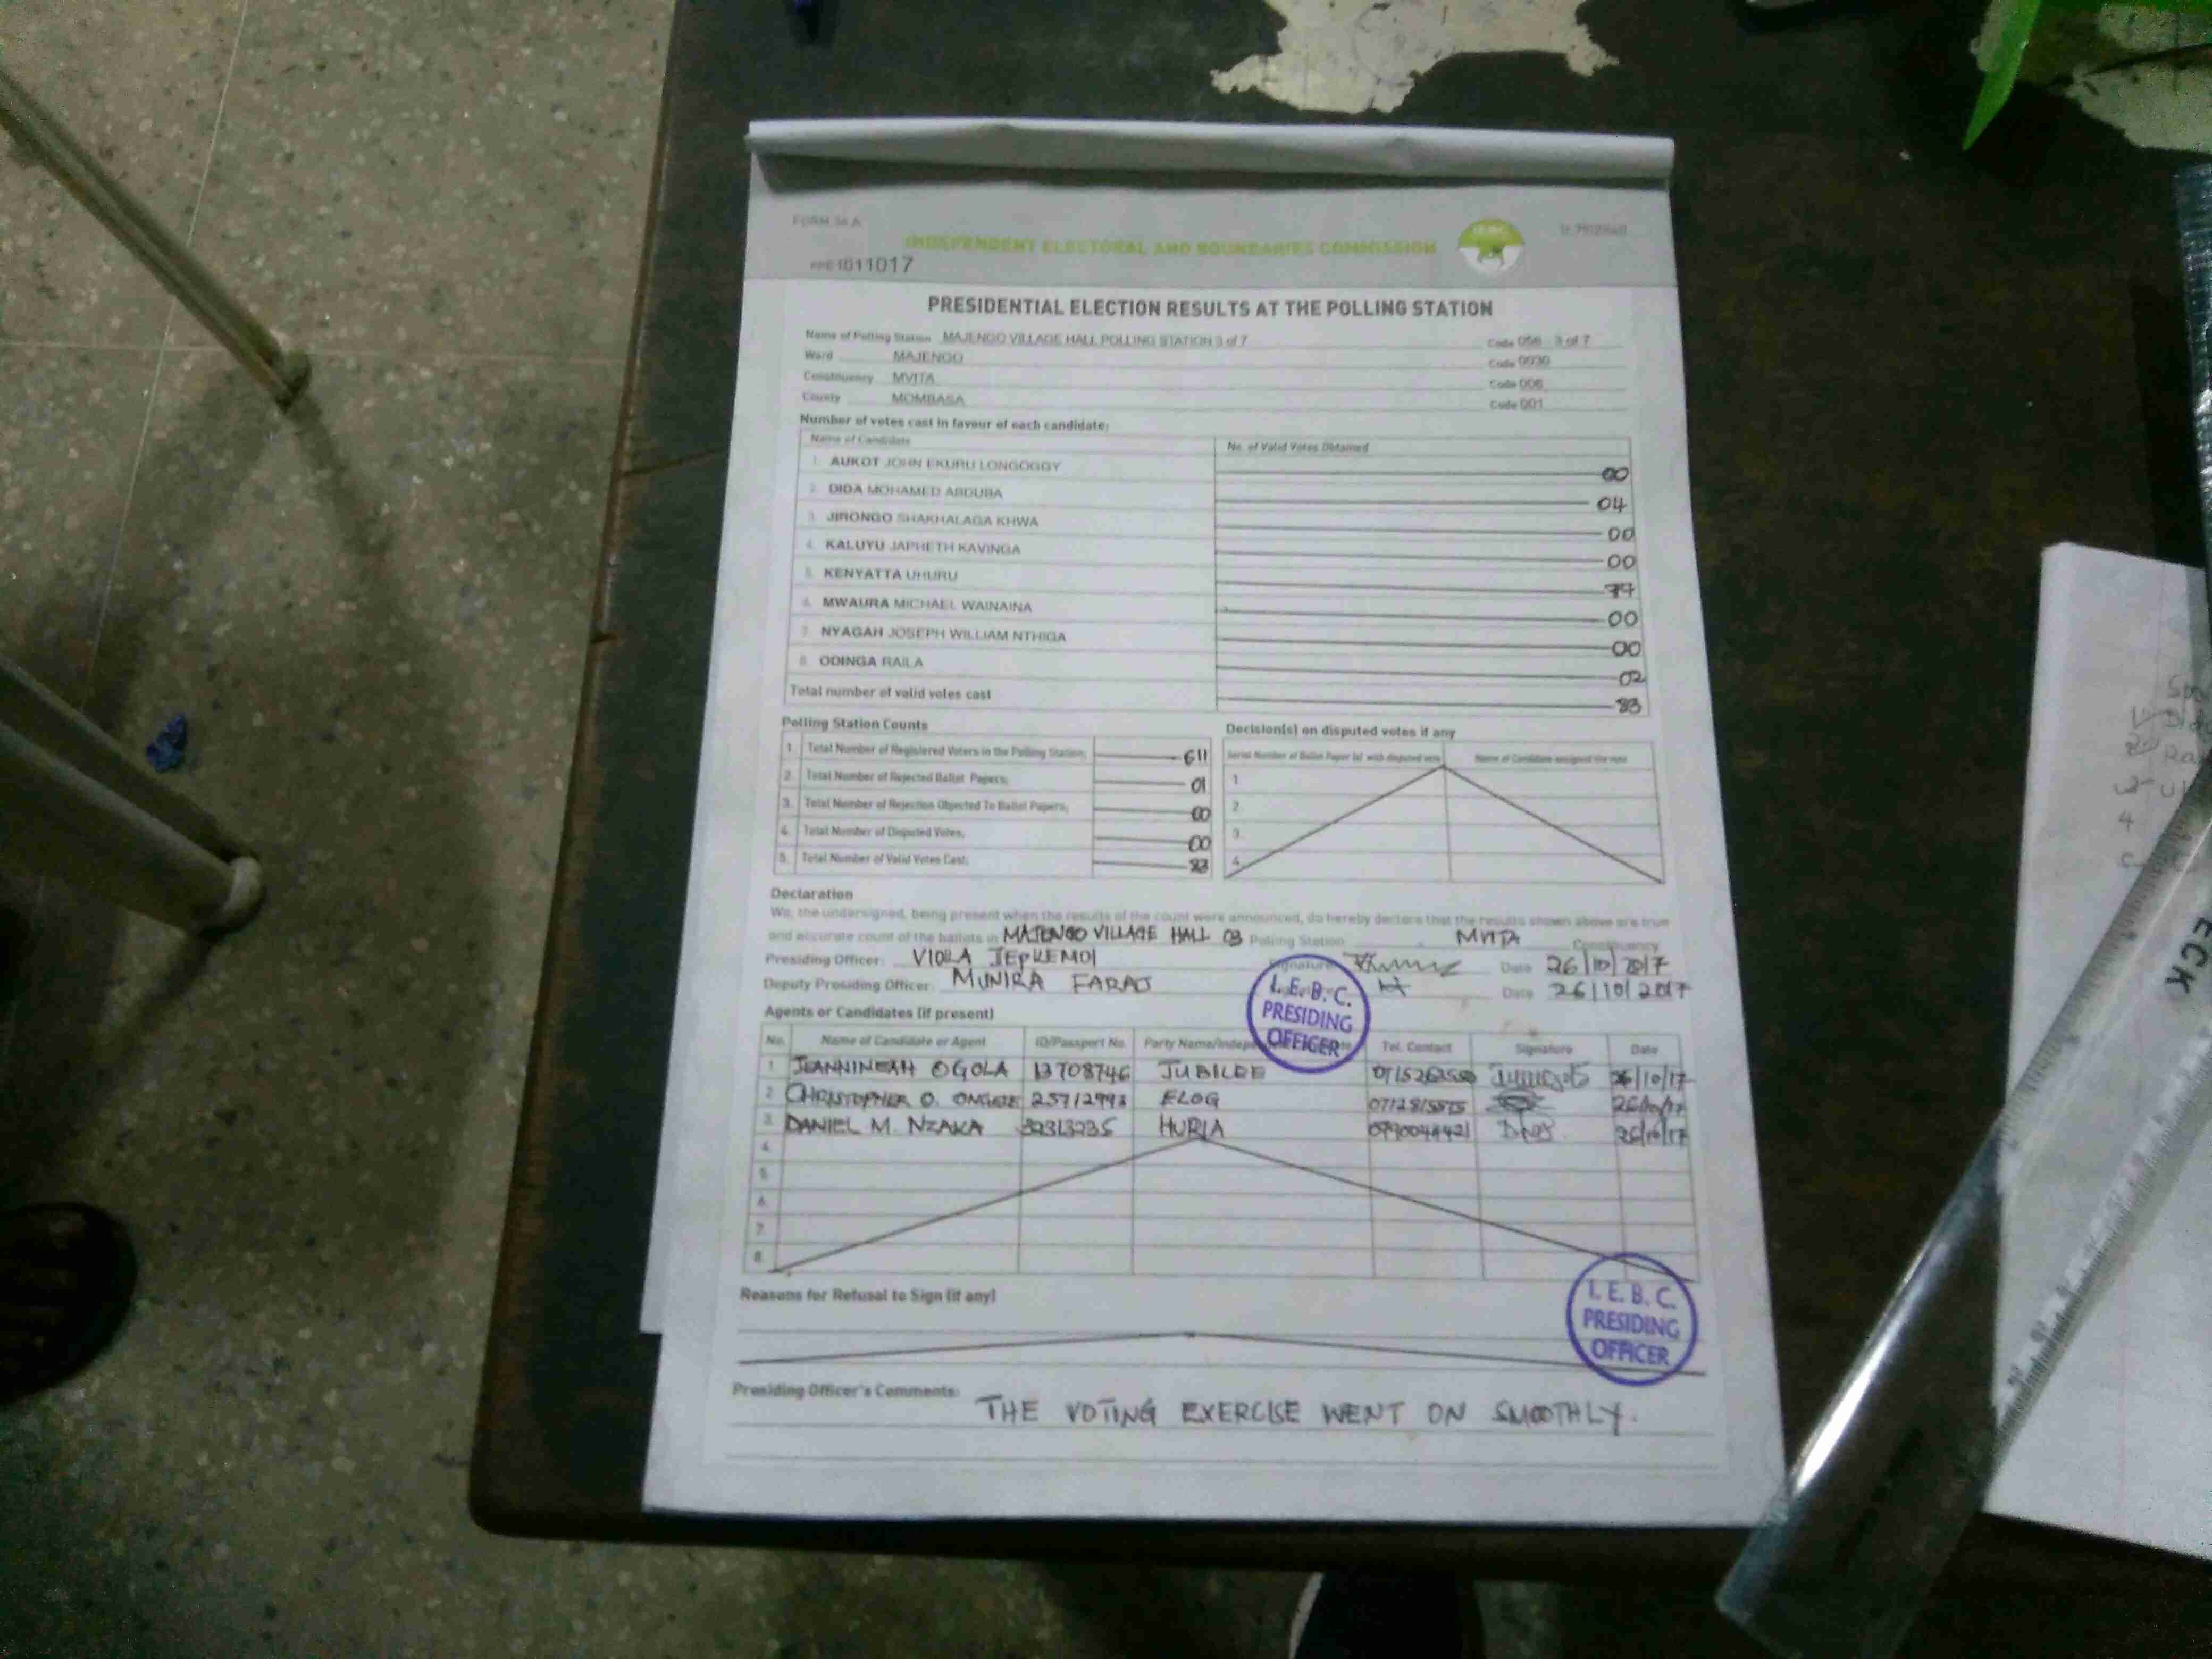 FORM 34 A
INDEPENDENT ELECTORAL AND BOUNDARIES COMMISSION
1011017
PRESIDENTIAL ELECTION RESULTS AT THE POLLING STATION
Name of Polling Station MAJENGO VILLAGE HALL POLLING STATION 3 of 7 Code 056 3 of 7
Ward MAJENGO Code 0030
Constituency MVITA Code 006
County MOMBASA Code 001
Number of votes cast in favour of each candidate:
Name of Candidate No. of Valid Votes Obtained
1. AUKOT JOHN EKURU LONGOGGY 00
2. DIDA MOHAMED ABDUBA 04
3. JIRONGO SHAKHALAGA KHWA 00
4. KALUYU JAPHETH KAVINGA 00
5. KENYATTA UHURU 77
6. MWAURA MICHAEL WAINAINA 00
7. NYAGAH JOSEPH WILLIAM NTHIGA 00
8. ODINGA RAILA 02
Total number of valid votes cast 83
Polling Station Counts Decision(s) on disputed votes if any
1. Total Number of Registered Voters in the Polling Station; 611
Serial Number of Ballot Paper (s) with disputed vote Name of Candidate assigned the vote
2. Total Number of Rejected Ballot Papers; 01
3. Total Number of Rejection Objected To Ballot Papers; 00
4. Total Number of Disputed Votes; 00
5. Total Number of Valid Votes Cast; 83
1.
2.
3.
4.
Declaration
We, the undersigned, being present when the results of the count were announced, do hereby declare that the results shown above are true
and accurate count of the ballots in MAJENGO VILLAGE HALL 03 Polling Station MVITA Constituency
Presiding Officer: VIOLA JEPKEMOI Signature Date 26/10/2017
Deputy Presiding Officer: MUNIRA FARAJ Date 26/10/2017
I.E.B.C.
PRESIDING
OFFICER
Agents or Candidates (if present)
No. Name of Candidate or Agent ID/Passport No. Party Name/Indep Tel. Contact Signature Date
1 JEANNINEAH OGOLA 13708746 JUBILEE 26/10/17
2. CHRISTOPHER O. 25712993 ELOG 26/10/17
3. DANIEL M. NZAKA HURIA 0790044421 26/10/17
4.
5.
6.
7.
8.
Reasons for Refusal to Sign (if any)
I. E. B. C.
PRESIDING
OFFICER
Presiding Officer's Comments: THE VOTING EXERCISE WENT ON SMOOTHLY.
ECK